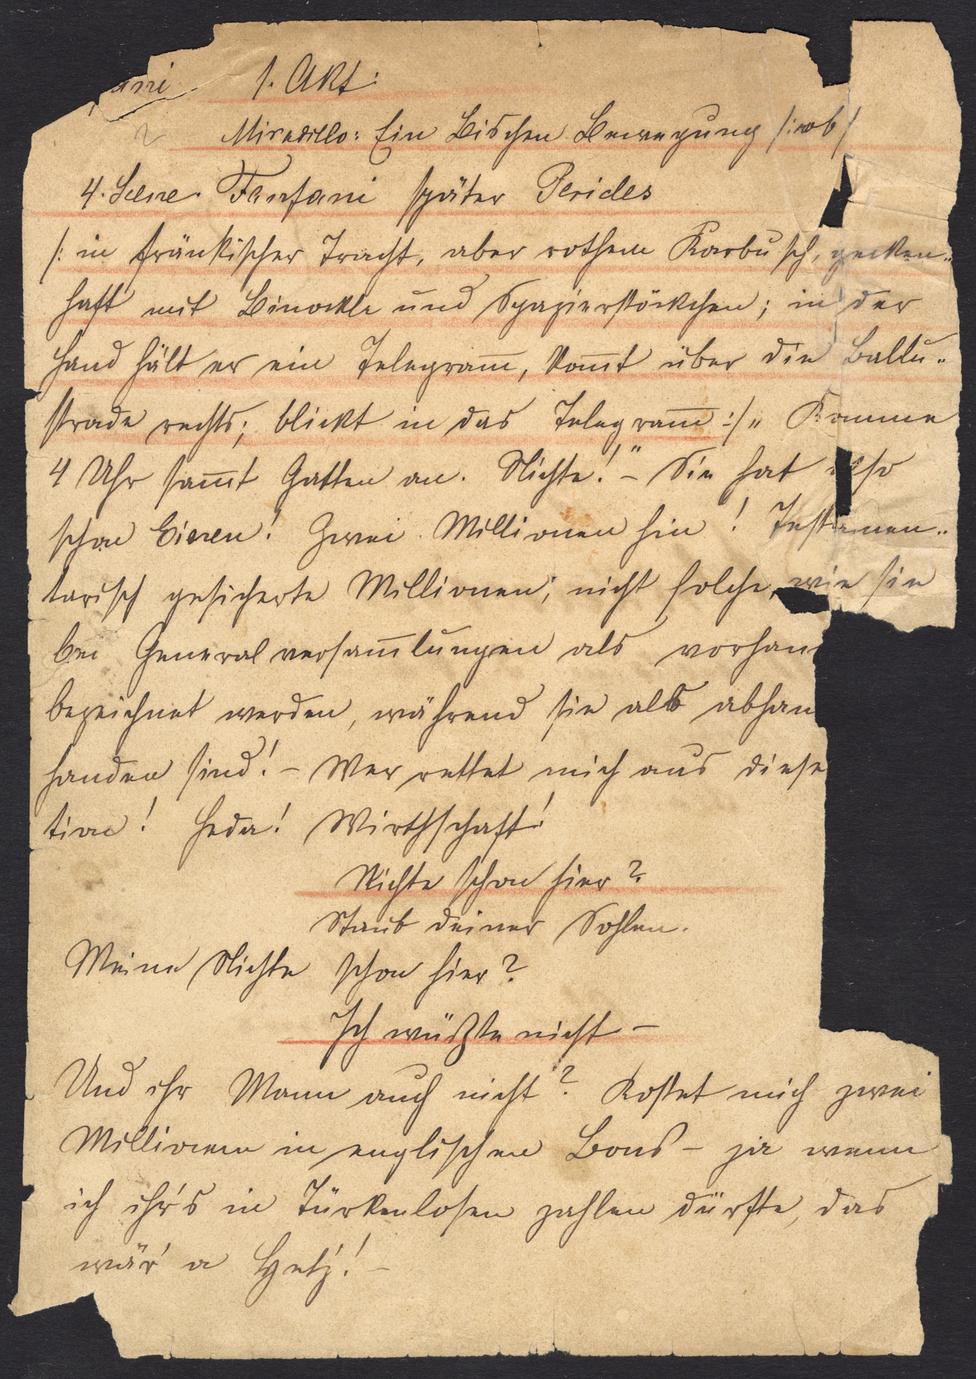 ani 1. Akt:
Miradillo: Ein Bischen Bewegung /: wb /
4. Scene. Fanfani später Perides
/: in fränkischer Tracht, aber rothem Karbusch, gecken..
haft mit Binockle und Spazierstöckchen; in der
Hand hält er ein Telegram̄, kom̄t über die Ballu..
strade rechts; blickt in das Telegram̄ :/ „ Komme
4 Uhr sam̄t Gatten an. Nichte!" – Sie hat also
schon Einen! Zwei Millionen hin! Testamen..
tarisch gesicherte Millionen; nicht solche, wie sie
bei Generalversam̄lungen als vorhan
bezeichnet werden, während sie als abhan
handen sind! – Wer rettet mich aus diese
tion! Heda! Wirthschaft!
Nichte schon hier?
Staub deiner Sohlen.
Meine Nichte schon hier?
Ich wüßte nicht –
Und ihr Mann auch nicht? Kostet mich zwei
Millionen in englischen Bons – ja wenn
ich ihr's in Türkenlosen zahlen dürfte, das
wär' a Hetz! –